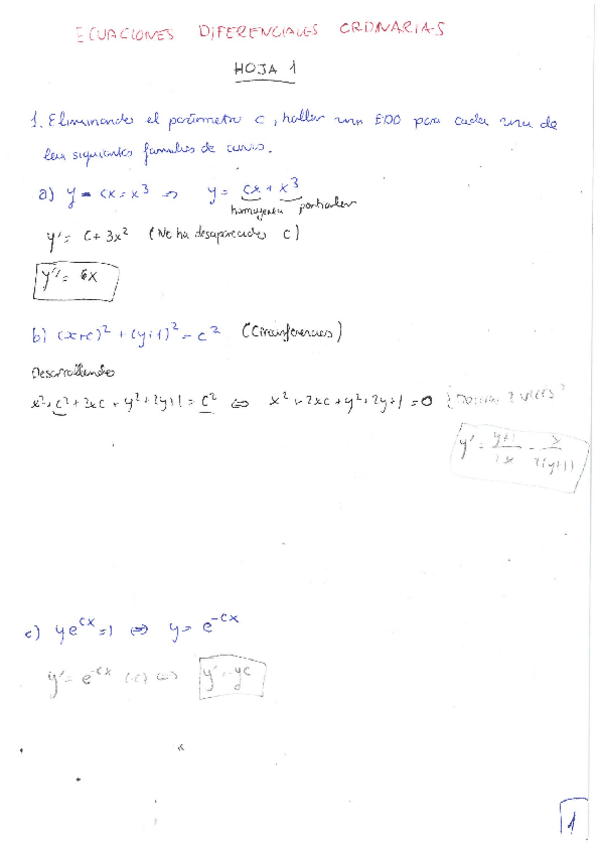 ECUACIONES DIFERENCIALES ORDINARIAS
HOJA 1
1. Eliminando el parámetro C, hallar una EDO para cada una de
las siguientes familias de curvas.
a) y - cx = x³ ⇒ y = cx + x³
homogenea particular
y' = C + 3x² (No ha desaparecido C)
y'' = 6x
b) (x+c)² + (y+1)² = c² (Circunferencias)
Desarrollando
x² + c² + 2xc + y² + 2y + 1 = c² ⇔ x² + 2xc + y² + 2y + 1 = 0
y' = y+1/2x - x/2(y+1)
c) ye^cx = 1 ⇔ y = e^-cx
y' = e^-cx (-c) ⇔ y' = -yc
1